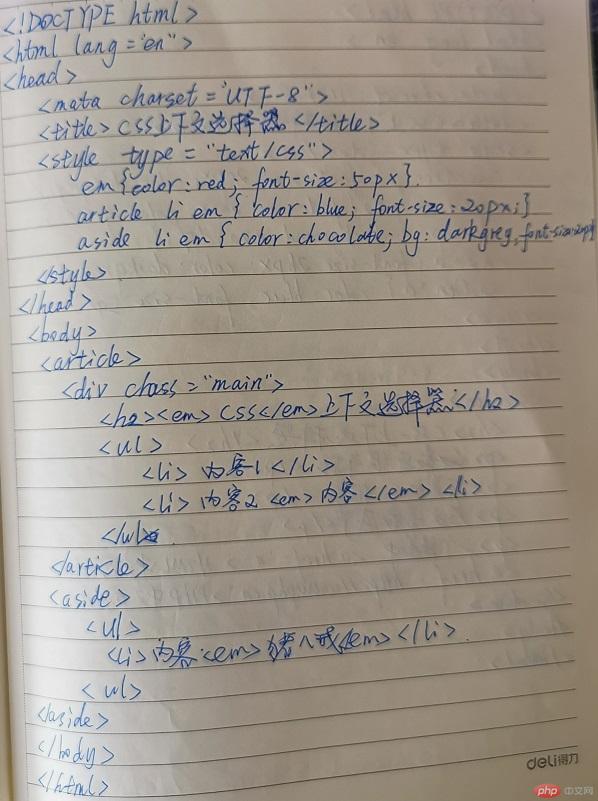 <!DOCTYPE html>
<html lang="en">
<head>
<mata charset="UTF-8">
<title>CSS上下文选择器</title>
<style type="text/css">
em{color:red; font-size:50px}
article li em{color:blue; font-size:20px;}
aside li em{color:chocolate; bg:darkgreg,font-size:20px}
</style>
</head>
<body>
<article>
<div chass="main">
<h2><em>CSS</em>上下文选择器</h2>
<ul>
<li>内容1</li>
<li>内容2<em>内容</em><li>
</ul>
</article>
<aside>
<ul>
<li>内容<em>猪八戒<em></li>
<ul>
</aside>
</body>
</html>
deli得力
php中文网